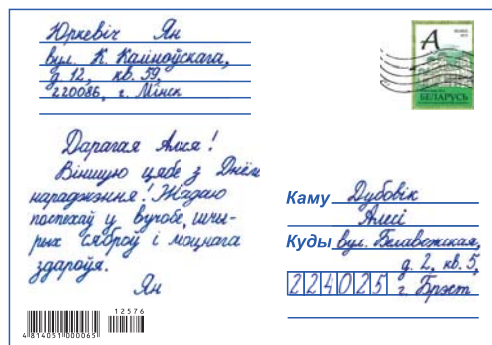 Юркевіч Ян
вул. К. Каліноўскага,
д. 12, кв. 59,
220086, г. Мінск
А
БЕЛАРУСЬ
Дарагая Алеся!
Віншую цябе з Днём
нараджэння! Жадаю
поспехаў у вучобе, шчы-
рых сяброў і моцнага
здароўя.
Ян
Каму Дубовік
Алесі
Куды вул. Белавежская,
д. 2, кв. 5,
224025 г. Брэст
12576
4 814051 000065